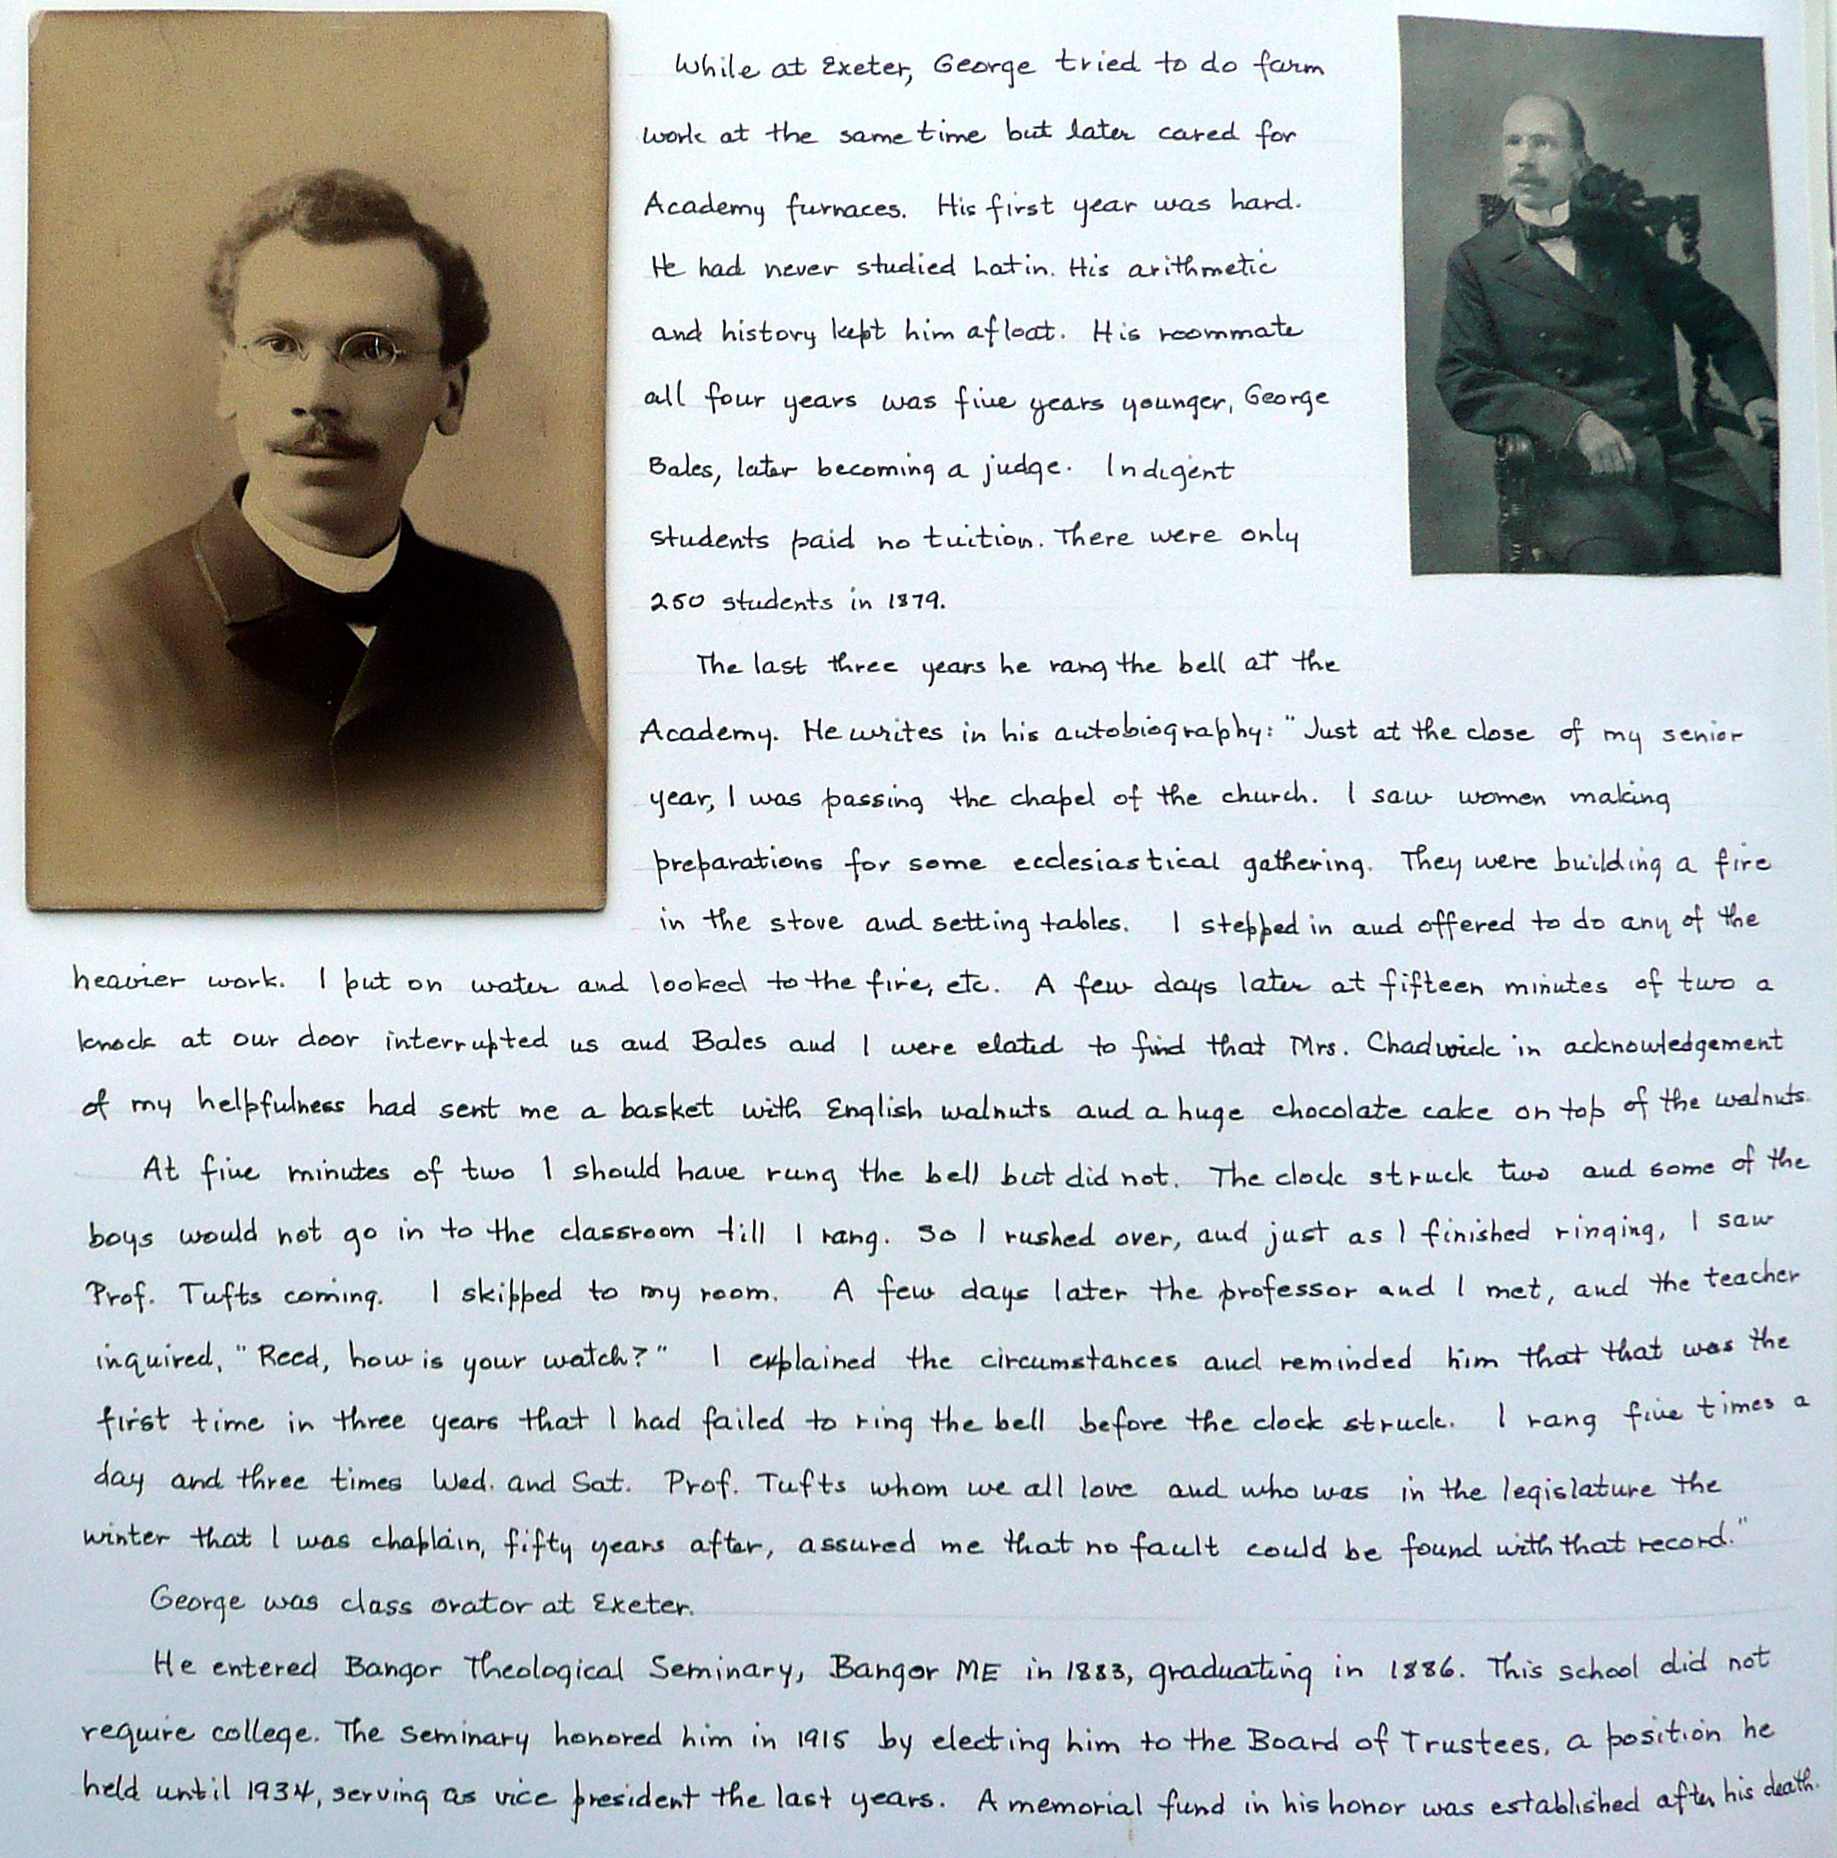 While at Exeter, George tried to do farm
work at the same time but later cared for
Academy furnaces. His first year was hard.
He had never studied Latin. His arithmetic
and history kept him afloat. His roommate
all four years was five years younger, George
Bales, later becoming a judge. Indigent
students paid no tuition. There were only
250 students in 1879.
The last three years he rang the bell at the
Academy. He writes in his autobiography: "Just at the close of my senior
year, I was passing the chapel of the church. I saw women making
preparations for some ecclesiastical gathering. They were building a fire
in the stove and setting tables. I stepped in and offered to do any of the
heavier work. I put on water and looked to the fire, etc. A few days later at fifteen minutes of two a
knock at our door interrupted us and Bales and I were elated to find that Mrs. Chadwick in acknowledgement
of my helpfulness had sent me a basket with English walnuts and a huge chocolate cake on top of the walnuts.
At five minutes of two I should have rung the bell but did not. The clock struck two and some of the
boys would not go in to the classroom till I rang. So I rushed over, and just as I finished ringing, I saw
Prof. Tufts coming. I skipped to my room. A few days later the professor and I met, and the teacher
inquired, "Reed, how is your watch?" I explained the circumstances and reminded him that that was the
first time in three years that I had failed to ring the bell before the clock struck. I rang five times a
day and three times Wed. and Sat. Prof. Tufts whom we all love and who was in the legislature the
winter that I was chaplain, fifty years after, assured me that no fault could be found with that record."
George was class orator at Exeter.
He entered Bangor Theological Seminary, Bangor ME in 1883, graduating in 1886. This school did not
require college. The Seminary honored him in 1915 by electing him to the Board of Trustees, a position he
held until 1934, serving as vice president the last years. A memorial fund in his honor was established after his death.